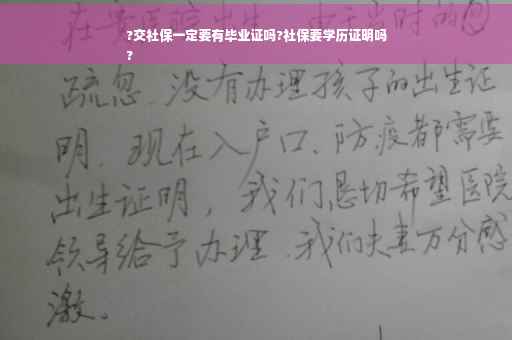 ?交社保一定要有毕业证吗?社保要学历证明吗
?
在 医院出生,由于当时的
疏忽.没有办理孩子的出生证
明.现在入户口、防疫都需要
出生证明,我们恳切希望医院
领导给予办理.我们夫妻万分感
激。